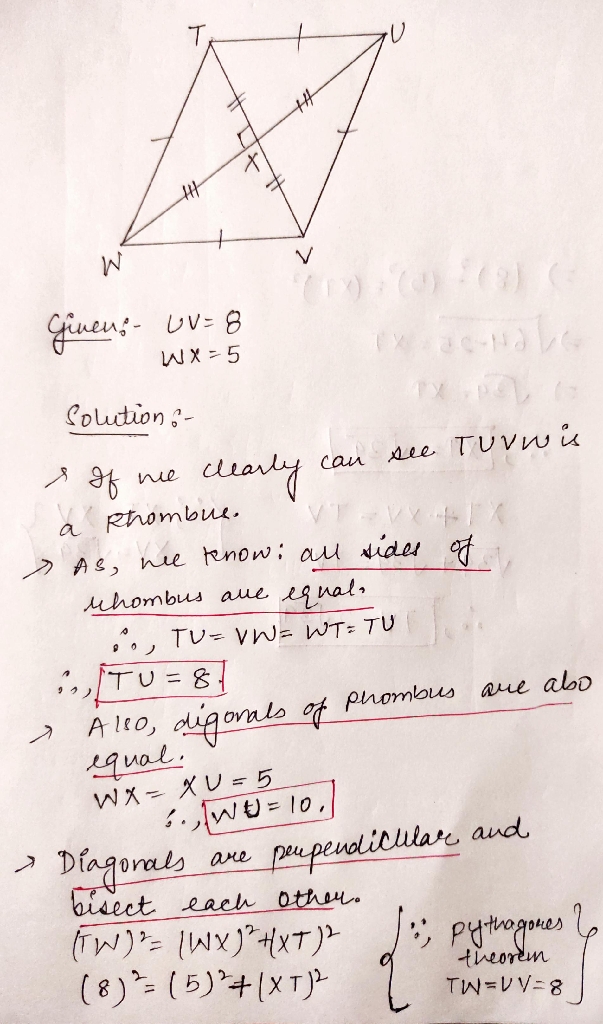 T U
X
W V
Given:- UV = 8
WX = 5
Solution:-
→ If we clearly can see TUVW is
a Rhombus.
→ As, we know: all sides of
rhombus are equal.
∴, TU = VW = WT = TU
∴, TU = 8.
→ Also, digonals of rhombus are also
equal.
WX = XU = 5
∴, WU = 10.
→ Diagonals are perpendicular and
bisect each other.
(TW)² = (WX)² + (XT)² {∵, pythagores
(8)² = (5)² + (XT)² theorem
TW = UV = 8}